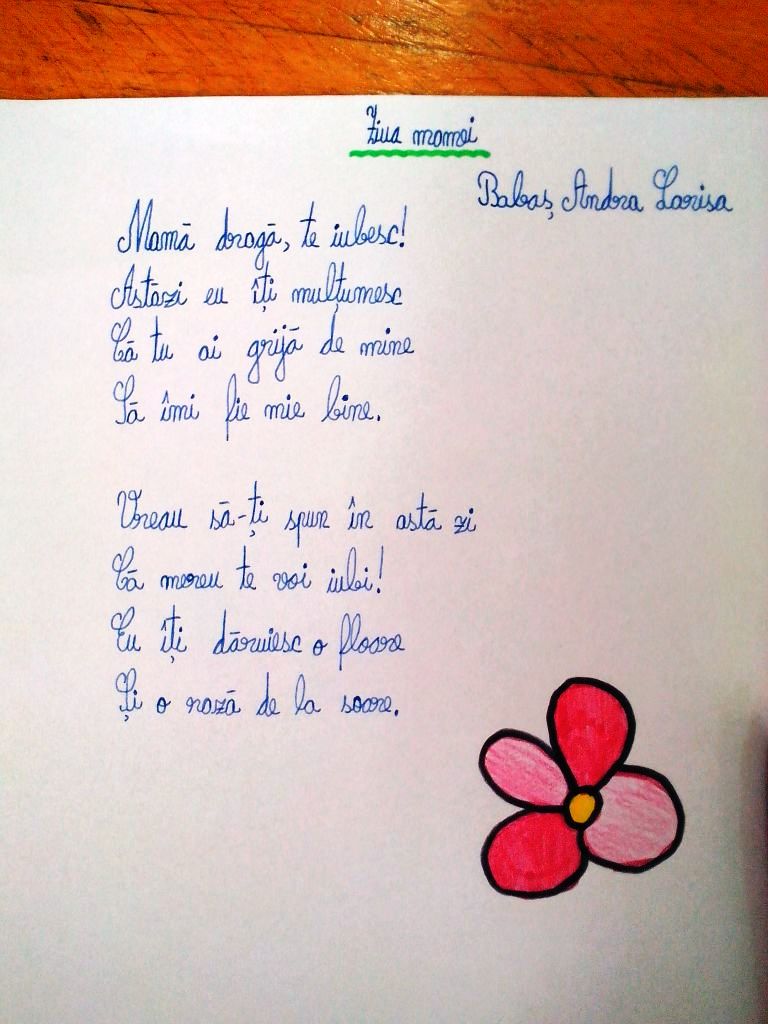 Ziua mamei
Babaș Andra Larisa
Mamă dragă, te iubesc!
Astăzi eu îți mulțumesc
Că tu ai grijă de mine
Să îmi fie mie bine.
Vreau să-ți spun în astă zi
Că mereu te voi iubi!
Eu îți dăruiesc o floare
Și o rază de la soare.